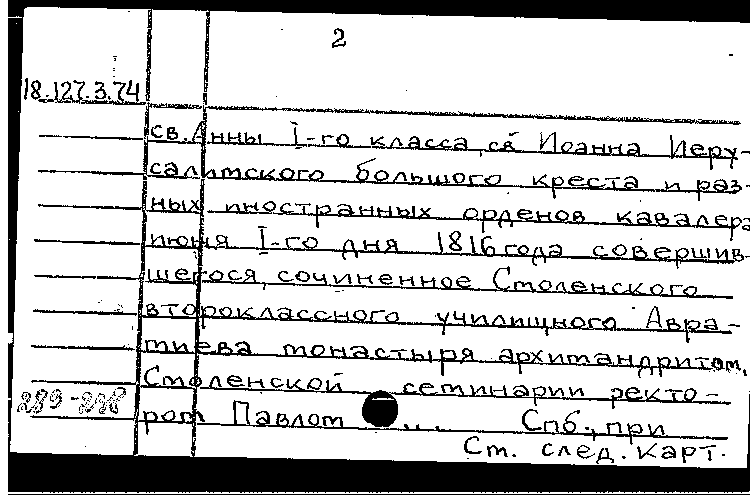 2
18.127.3.74
св. Анны I-го класса, св. Иоанна Иеру-
салимского большого креста и раз-
ных иностранных орденов кавалера
июня I-го дня 1816 года совершив-
шегося, сочиненное Смоленского
второклассного училищного Авра-
миева монастыря архимандритом,
Смоленской семинарии ректо-
289-288
ром Павлом ... Спб., при
См. след. карт.